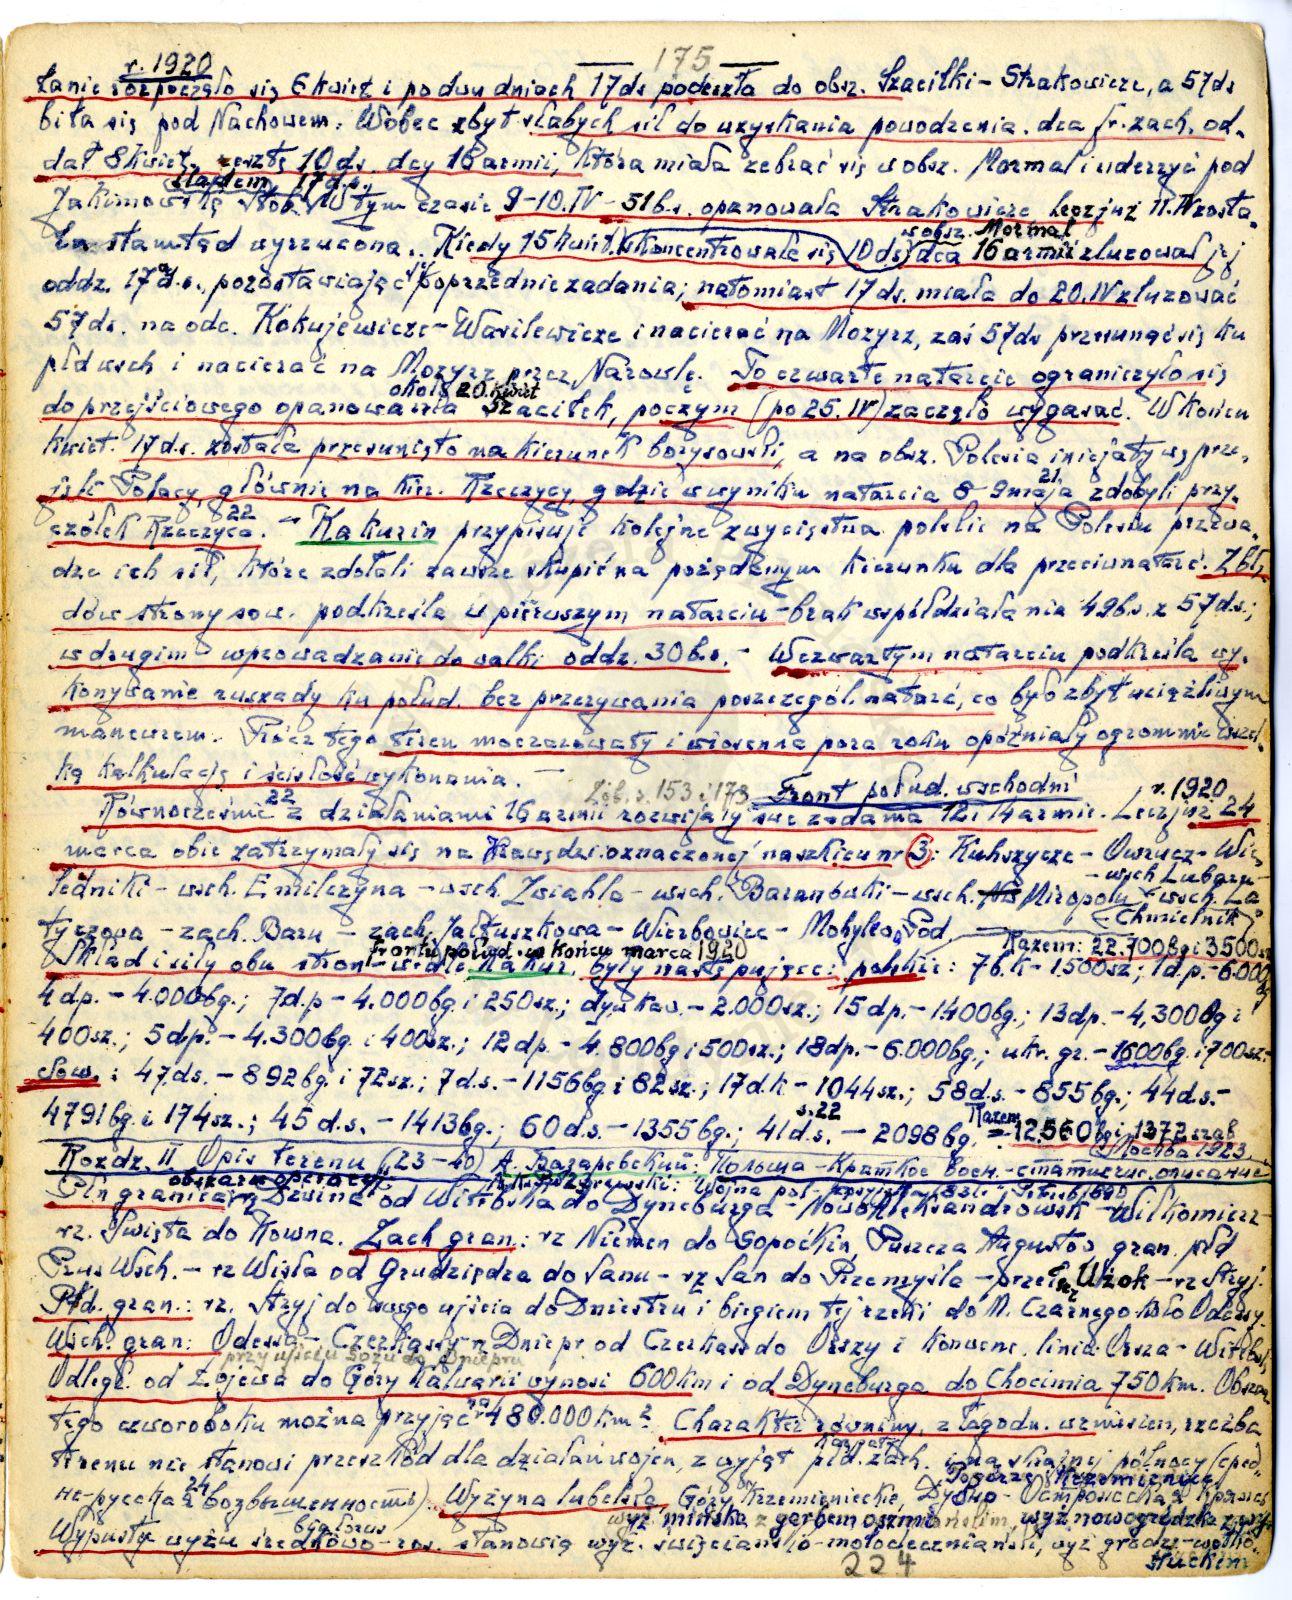 r. 1920
— 175 —
łanie rozpoczęło się 6 kwiet i po dwu dniach 17ds podeszła do obsz. Szaciłki – Strakowicze, a 57ds
biła się pod Nachowem. Wobec zbyt słabych sił do uzyskania powodzenia, dca fr. zach. od-
dał 8 kwiet. resztę 10ds. dcy 16 armii, która miała zebrać się w obsz. Mormal i uderzyć pod
śladem 17 d.p.
Jakimowską Słob. W tym czasie 9–10.IV – 51 b.s. opanowała Strakowicze lecz już 11.IV zosta-
w obsz. Mormal
ła stamtąd wyrzucona. Kiedy 15 kwiet. skoncentrowała się 10ds, dca 16 armii zluzował jej
oddz. 17 d.s. pozostawiając poprzednie zadania; natomiast 17ds. miała do 20.IV zluzować
57ds. na odc. Kokujewicze – Wasilewicze i nacierać na Mozyrz, zaś 57ds przesunąć się ku
płd wsch i nacierać na Mozyrz przez Narowlę. To czwarte natarcie ograniczyło się
około 20 kwiet
do przejściowego opanowania Szaciłek, poczym (po 25.IV) zaczęło wygasać. W końcu
kwiet. 17d.s. została przesunięta na kierunek borysowski, a na obsz. Polesia inicjatywę prze-
jęli Polacy, głównie na kier. Rzeczycy, gdzie w wyniku natarcia 8–9 maja zdobyli przy-
21
czółek Rzeczyca. 22 – Kakurin przypisuje kolejne zwycięstwa polskie na Polesiu przewa-
dze ich sił, które zdołali zawsze skupić na pożądanym kierunku dla przeciwnatarć. Z błę-
dów strony sow. podkreśla w pierwszym natarciu – brak współdziałania 49b.s. z 57d.s.;
w drugim – wprowadzanie do walki oddz. 30b.s. – W czwartym natarciu podkreśla wy-
konywanie rurzady ku połud. bez przerywania poszczegól. natarć, co było zbyt uciążliwym
manewrem. Prócz tego teren moczarowaty i wiosenna pora roku opóźniały ogromnie wszel-
ką kalkulację i ścisłość wykonania. —
Zob. s. 153 i 173 Front połud. wschodni r. 1920
Równocześnie 22 z działaniami 16 armii rozwijały swe zadania 12 i 14 armie. Lecz już 24
marca obie zatrzymały się na krawędzi oznaczonej na szkicu nr 3: Kuhszycze – Owrucz – Wie-
ledniki – wsch. Emilczyna – wsch. Zwiahla – wsch. Baranówki – wsch. Miropolu – wsch. Lubaru – wsch. La-
Chmielnik
tyczowa – zach. Baru – zach. Jałtuszkowa – Wierbowiec – Mohylew Pod.
Razem: 22.700 bg i 3500 sz
frontu połud. w końcu marca 1920
Skład i siły obu stron wedle Kakur. były następujące: polskie: 7b.k – 1.500sz; 1d.p. – 6.000bg
4dp. – 4.000bg.; 7d.p – 4.000bg i 250sz.; dyw. kaw. – 2.000sz.; 15dp. – 1.400bg.; 13dp. – 4,300bg i
400sz.; 5dp. – 4.300bg i 400sz.; 12dp. – 4.800bg i 500sz.; 18dp. – 6.000bg.; ukr. gr. – 1600bg. i 700sz. –
Sow.: 47.ds. – 892bg. i 72sz.; 7d.s. – 1156bg i 82sz.; 17d.k – 1044sz.; 58d.s. – 855bg.; 44d.s. –
s. 22
4791bg. i 174sz.; 45d.s. – 1413bg.; 60d.s. – 1355bg.; 41d.s. – 2098bg. Razem = 12.560bg i 1372 szab
Москва 1923
Rozdz. II Opis terenu (23–40) А. Базаревский: Польша – Краткое воен.-статистич. описание
obszaru operacyj.
Płn granica rz Dźwina od Witebska do Dyneburga – Nowoaleksandrowsk – Wilkomierz –
rz. Święta do Kowna. Zach gran.: rz Niemen do Sopoćkin, Puszcza Augustow, gran. płd
Prus Wsch. – rz Wisła od Grudziądza do Sanu – rz San do Przemyśla – przeł. Użok – rz Stryj.
Płd. gran.: rz. Stryj do swego ujścia do Dniestru i biegiem tej rzeki do M. Czarnego koło Odessy.
Wsch. gran: Odessa – Czerkassy – rz Dniepr od Czerkass do Orszy i konwenc. linia: Orsza – Witebsk.
przy ujściu Sożu do Dniepru
Odległ. od Łojewa do Góry Kalwarii wynosi 600km i od Dyneburga do Chocimia 750km. Obszar
tego czworoboku można przyjąć na 480.000km². Charakter równiny, z łagodn. wzniesien, rzeźba
Karpaty
terenu nie stanowi przeszkód dla działań wojen, z wyjąt płd. zach. i na skrajnej północy (сред-
Pogórze Krzemienieckie
не-русская 24 возвышенность). Wyżyna lubelska, Góry Krzemienieckie, Дубно – Острожская кряж
wyż. mińska z garbem oszmiańskim, wyż nowogródzka z wyż.
Wypusty wyżu średkowo-ros. stanowią wyż. święciańsko-mołodeczniański, wyż grodz-wołko-
słuckim
224